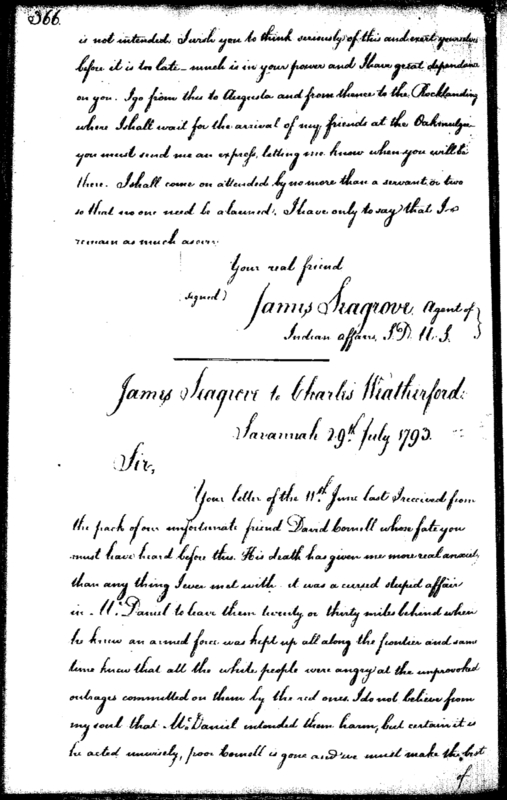 366.
is not intended. I wish you to think seriously of this and exert yourselves
before it is too late – much is in your power and I have great dependance
on you. I go from this to Augusta and from thence to the Rocklanding
where I shall wait for the arrival of my friends at the Oakmulgee
you must send me an express, letting me know when you will be
there. I shall come on attended by no more than a servant or two
so that no one need be alarmed. I have only to say that I
remain as much as ever
Your real friend
signed) James Seagrove, Agent of
Indian affairs, S.D. U.S.
James Seagrove to Charles Weatherford.
Savannah 29th July 1793.
Sir,
Your letter of the 11th June last I received from
the pack of our unfortunate friend David Cornell whose fate you
must have heard before this. His death has given me more real anxiety
than any thing I ever met with. it was a cursed stupid affair
in Mc Daniel to leave them twenty or thirty miles behind when
he knew an armed force was kept up all along the frontier and same
time knew that all the white people were angry at the unprovoked
outrages committed on them by the red ones. I do not believe from
my soul that Mc Daniel intended them harm, but certain it is
he acted unwisely, poor Cornell is gone and we must make the best
of